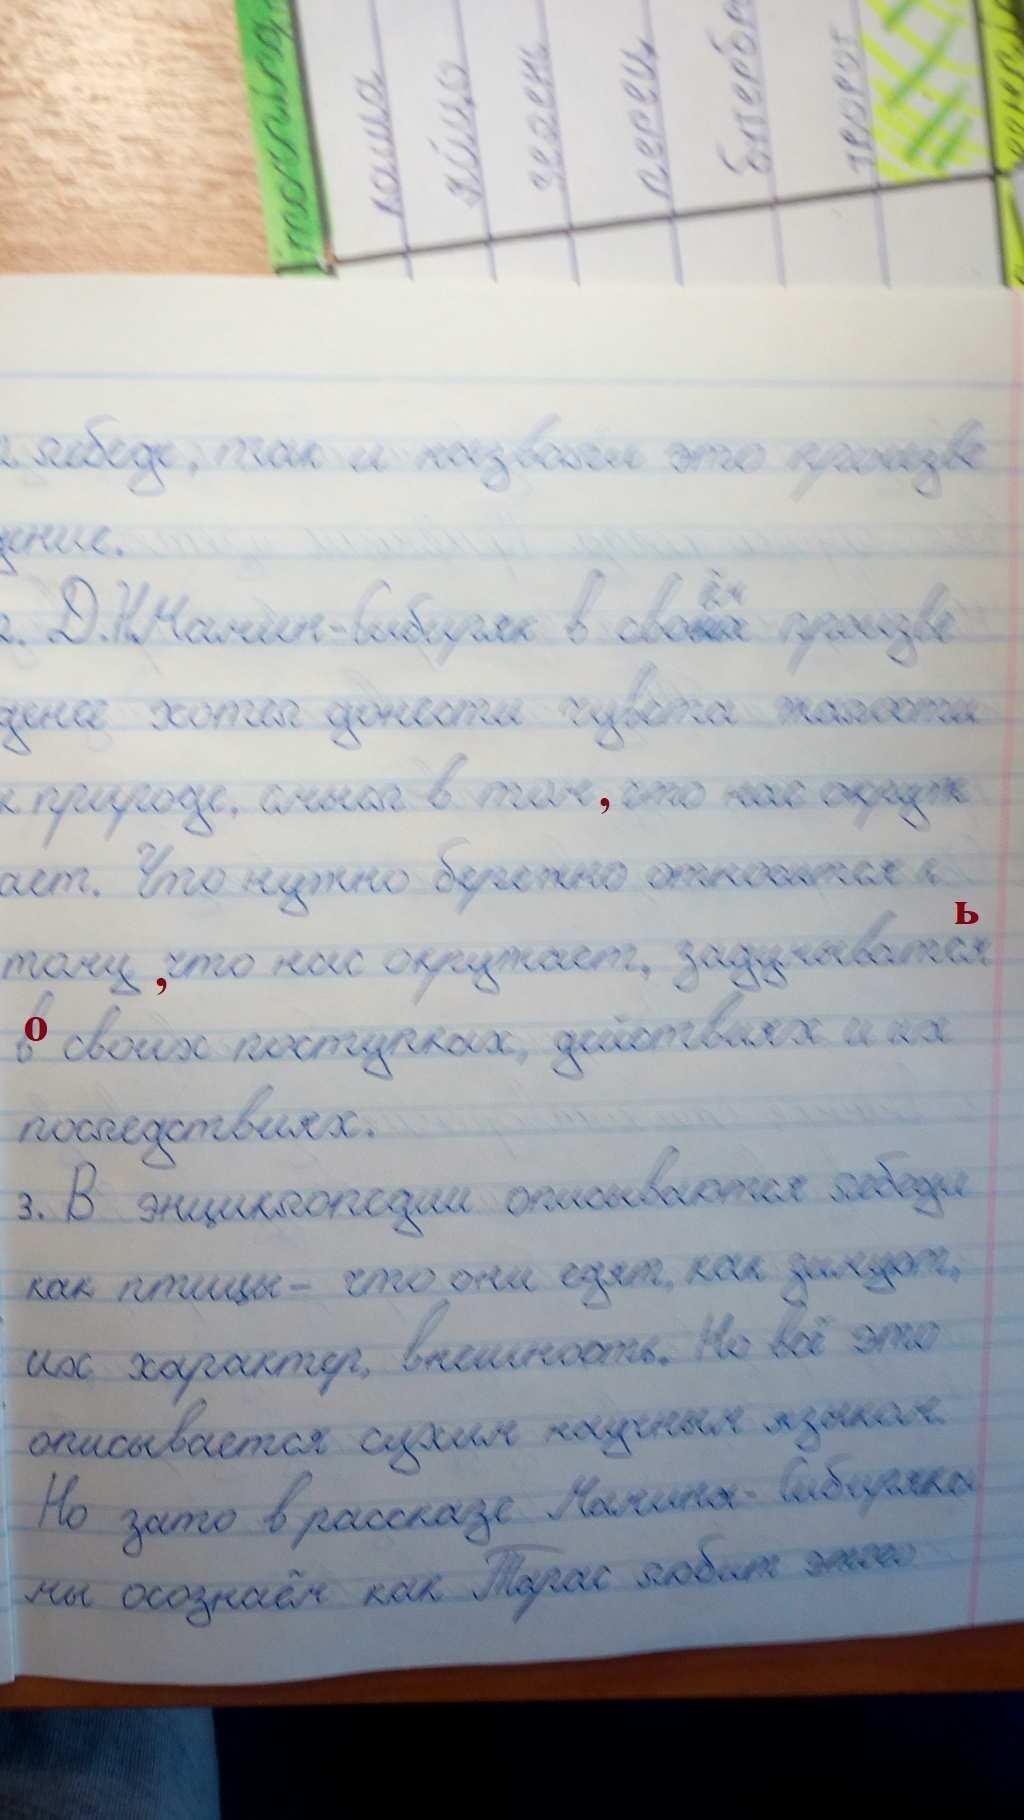 каша
яйцо
зелень
перец
бутербр
творог
лебеде, так и назвали это произве
дение.
2. Д.Н.Мамин-Сибиряк в своём произве
дение хотел донести чувства жалости
к природе. смысл в том, что нас окруж
ает. Что нужно бережно относится к
ь
тому, что нас окружает, задумыватся
о
в своих поступках, действиях и их
последствиях.
3. В энциклопедии описываются лебеди
как птицы - что они едят, как зимуют,
их характер, внешность. Но всё это
описывается сухим научным языком.
Но зато в рассказе Мамина-Сибиряка
мы осознаём как Тарас любит этого